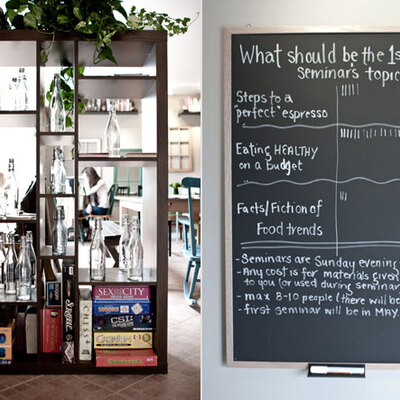 What should be the 1s
seminar's topic
Steps to a
"perfect" espresso
Eating HEALTHY
on a budget
Facts/Fiction of
Food trends
- Seminars are Sunday evening
- Any cost is for materials given
to you (or used during seminar
- max 8-10 people (there will be
- first seminar will be in MAY.
SEX AND THE CITY
CHESS
CSI